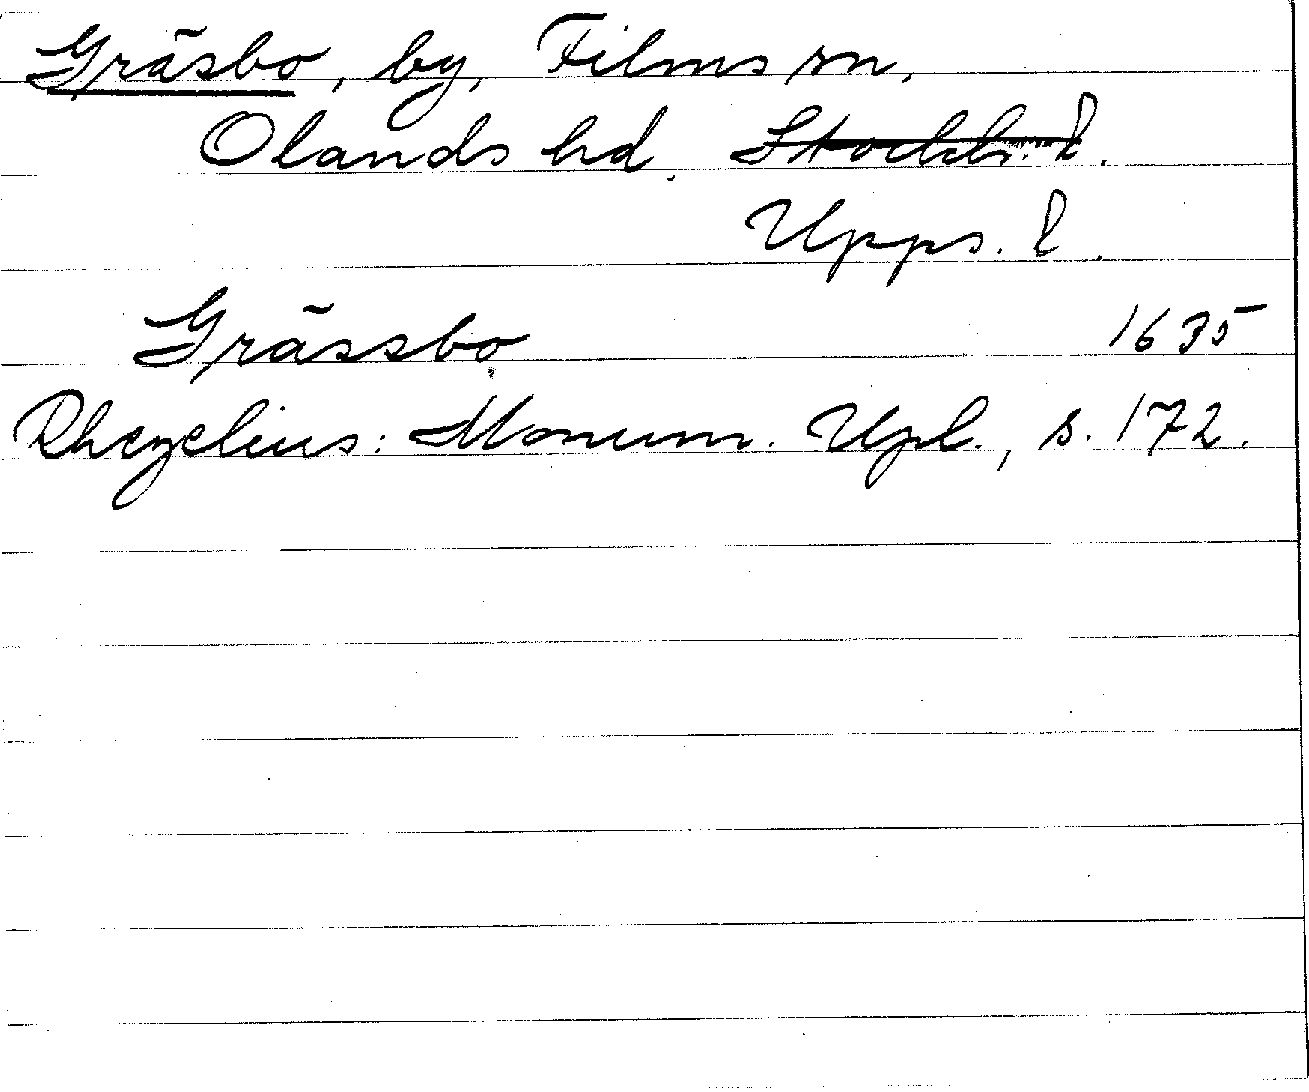 Gräsbo, by, Films sn,
Olands hd, Stockh. l.
Upps. l.
Grässbo 1635
Rhezelius: Monum. Upl., s. 172.